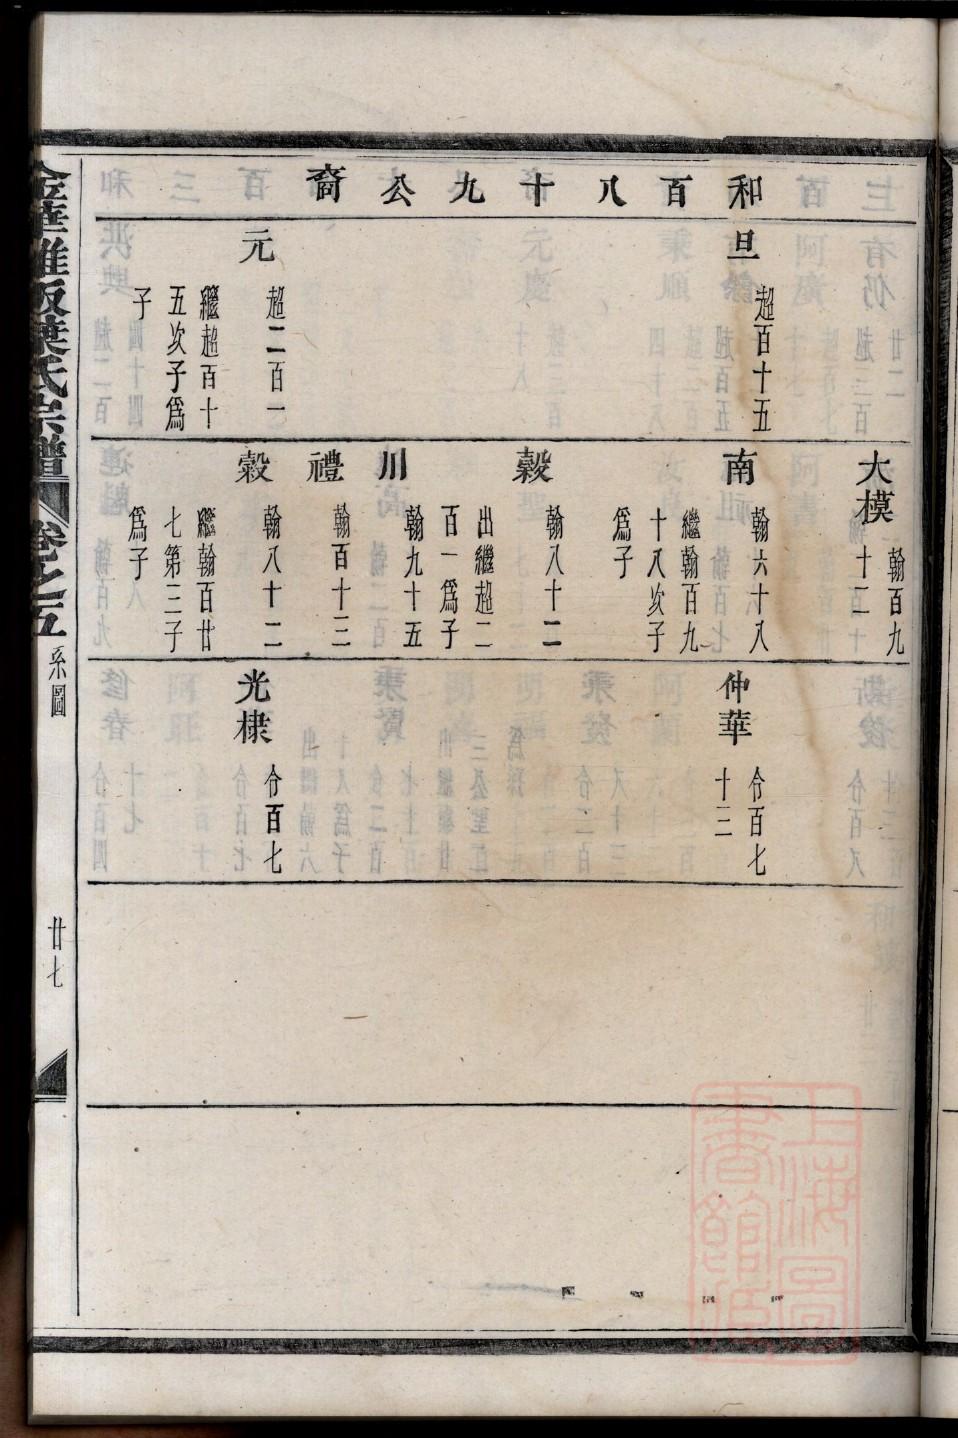 和百八十九公裔
旦
超百十五
元
超二百一
繼超百十
五次子爲
子
大模
翰百九
十二
南
翰六十八
繼翰百九
十八次子
爲子
穀
翰八十二
出繼超二
百一爲子
川
翰九十五
禮
翰百十三
穀
翰八十二
繼翰百廿
七第三子
爲子
仲華
令百七
十三
光棣
令百七
卷之五
系圖
廿七
上海圖
書館藏